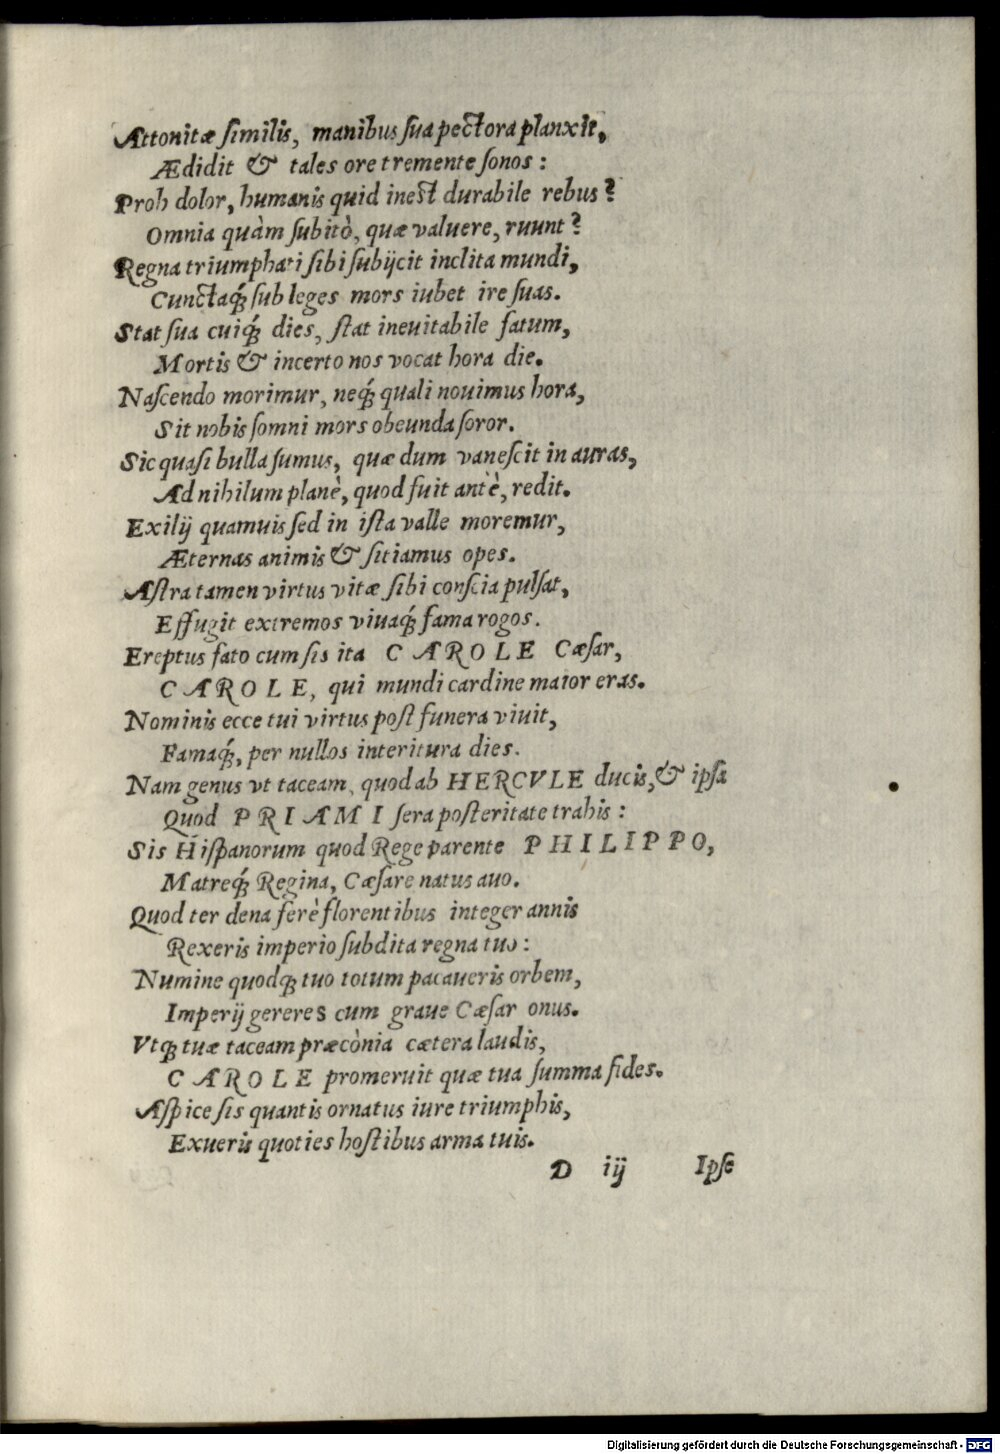 Attonitæ ſimilis, manibus ſua pectora planxit,
Ædidit & tales ore tremente ſonos:
Proh dolor, humanis quid ineſt durabile rebus?
Omnia quàm ſubitò, quæ valuere, ruunt?
Regna triumphati ſibi ſubijcit inclita mundi,
Cunctaq́; ſub leges mors iubet ire ſuas.
Stat ſua cuiq́; dies, ſtat ineuitabile fatum,
Mortis & incerto nos vocat hora die.
Naſcendo morimur, neq́; quali nouimus hora,
Sit nobis ſomni mors obeunda ſoror.
Sic quaſi bulla ſumus, quæ dum vaneſcit in auras,
Ad nihilum planè, quod fuit antè, redit.
Exilij quamuis ſed in iſta valle moremur,
Æternas animis & ſitiamus opes.
Aſtra tamen virtus vitæ ſibi conſcia pulſat,
Effugit extremos viuaq́; fama rogos.
Ereptus fato cum ſis ita CAROLE Cæſar,
CAROLE, qui mundi cardine maior eras.
Nominis ecce tui virtus poſt funera viuit,
Famaq́;, per nullos interitura dies.
Nam genus vt taceam, quod ab HERCVLE ducis, & ipſa
Quod PRIAMI ſera poſteritate trahis:
Sis Hiſpanorum quod Rege parente PHILIPPO,
Matreq́; Regina, Cæſare natus auo.
Quod ter dena ferè florentibus integer annis
Rexeris imperio ſubdita regna tuo:
Numine quodq; tuo totum pacaueris orbem,
Imperij gereres cum graue Cæſar onus.
Vtq; tuæ taceam præcònia cætera laudis,
CAROLE promeruit quæ tua ſumma fides.
Aſpice ſis quantis ornatus iure triumphis,
Exueris quoties hoſtibus arma tuis.
D iij Ipſe
Digitalisierung gefördert durch die Deutsche Forschungsgemeinschaft - DFG